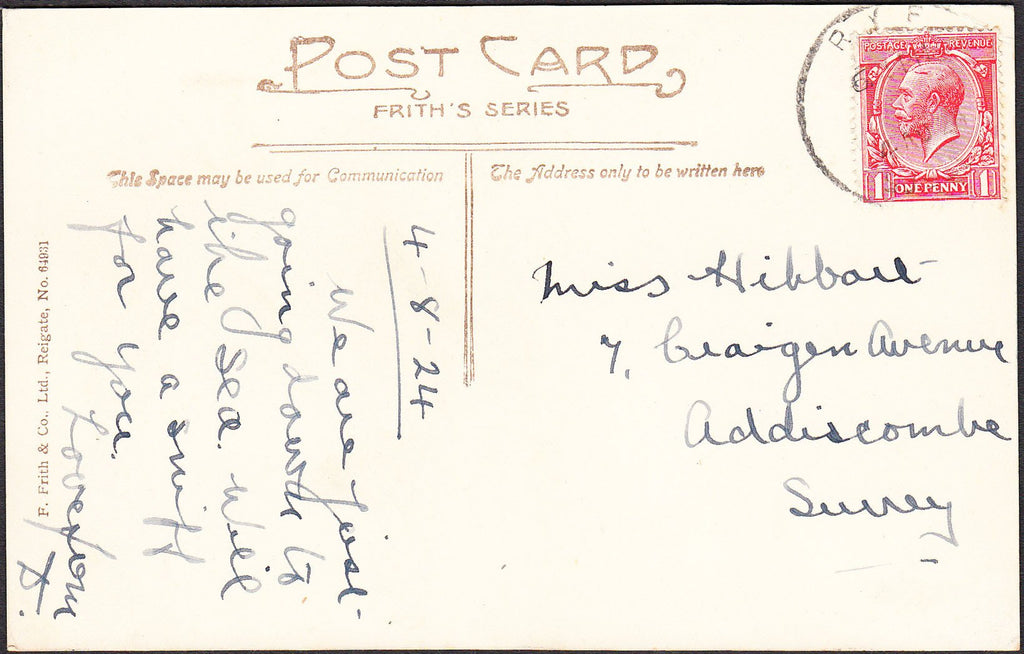 POST CARD
FRITH'S SERIES
This Space may be used for Communication
The Address only to be written here
4-8-24
We are just
going down to
the Sea. Will
have a sniff
for you.
Love from
X.
F. Frith & Co., Ltd., Reigate, No. 64931
RYE
POSTAGE REVENUE
1 ONE PENNY 1
Miss Hibbart
7, Craigen Avenue
Addiscombe
Surrey